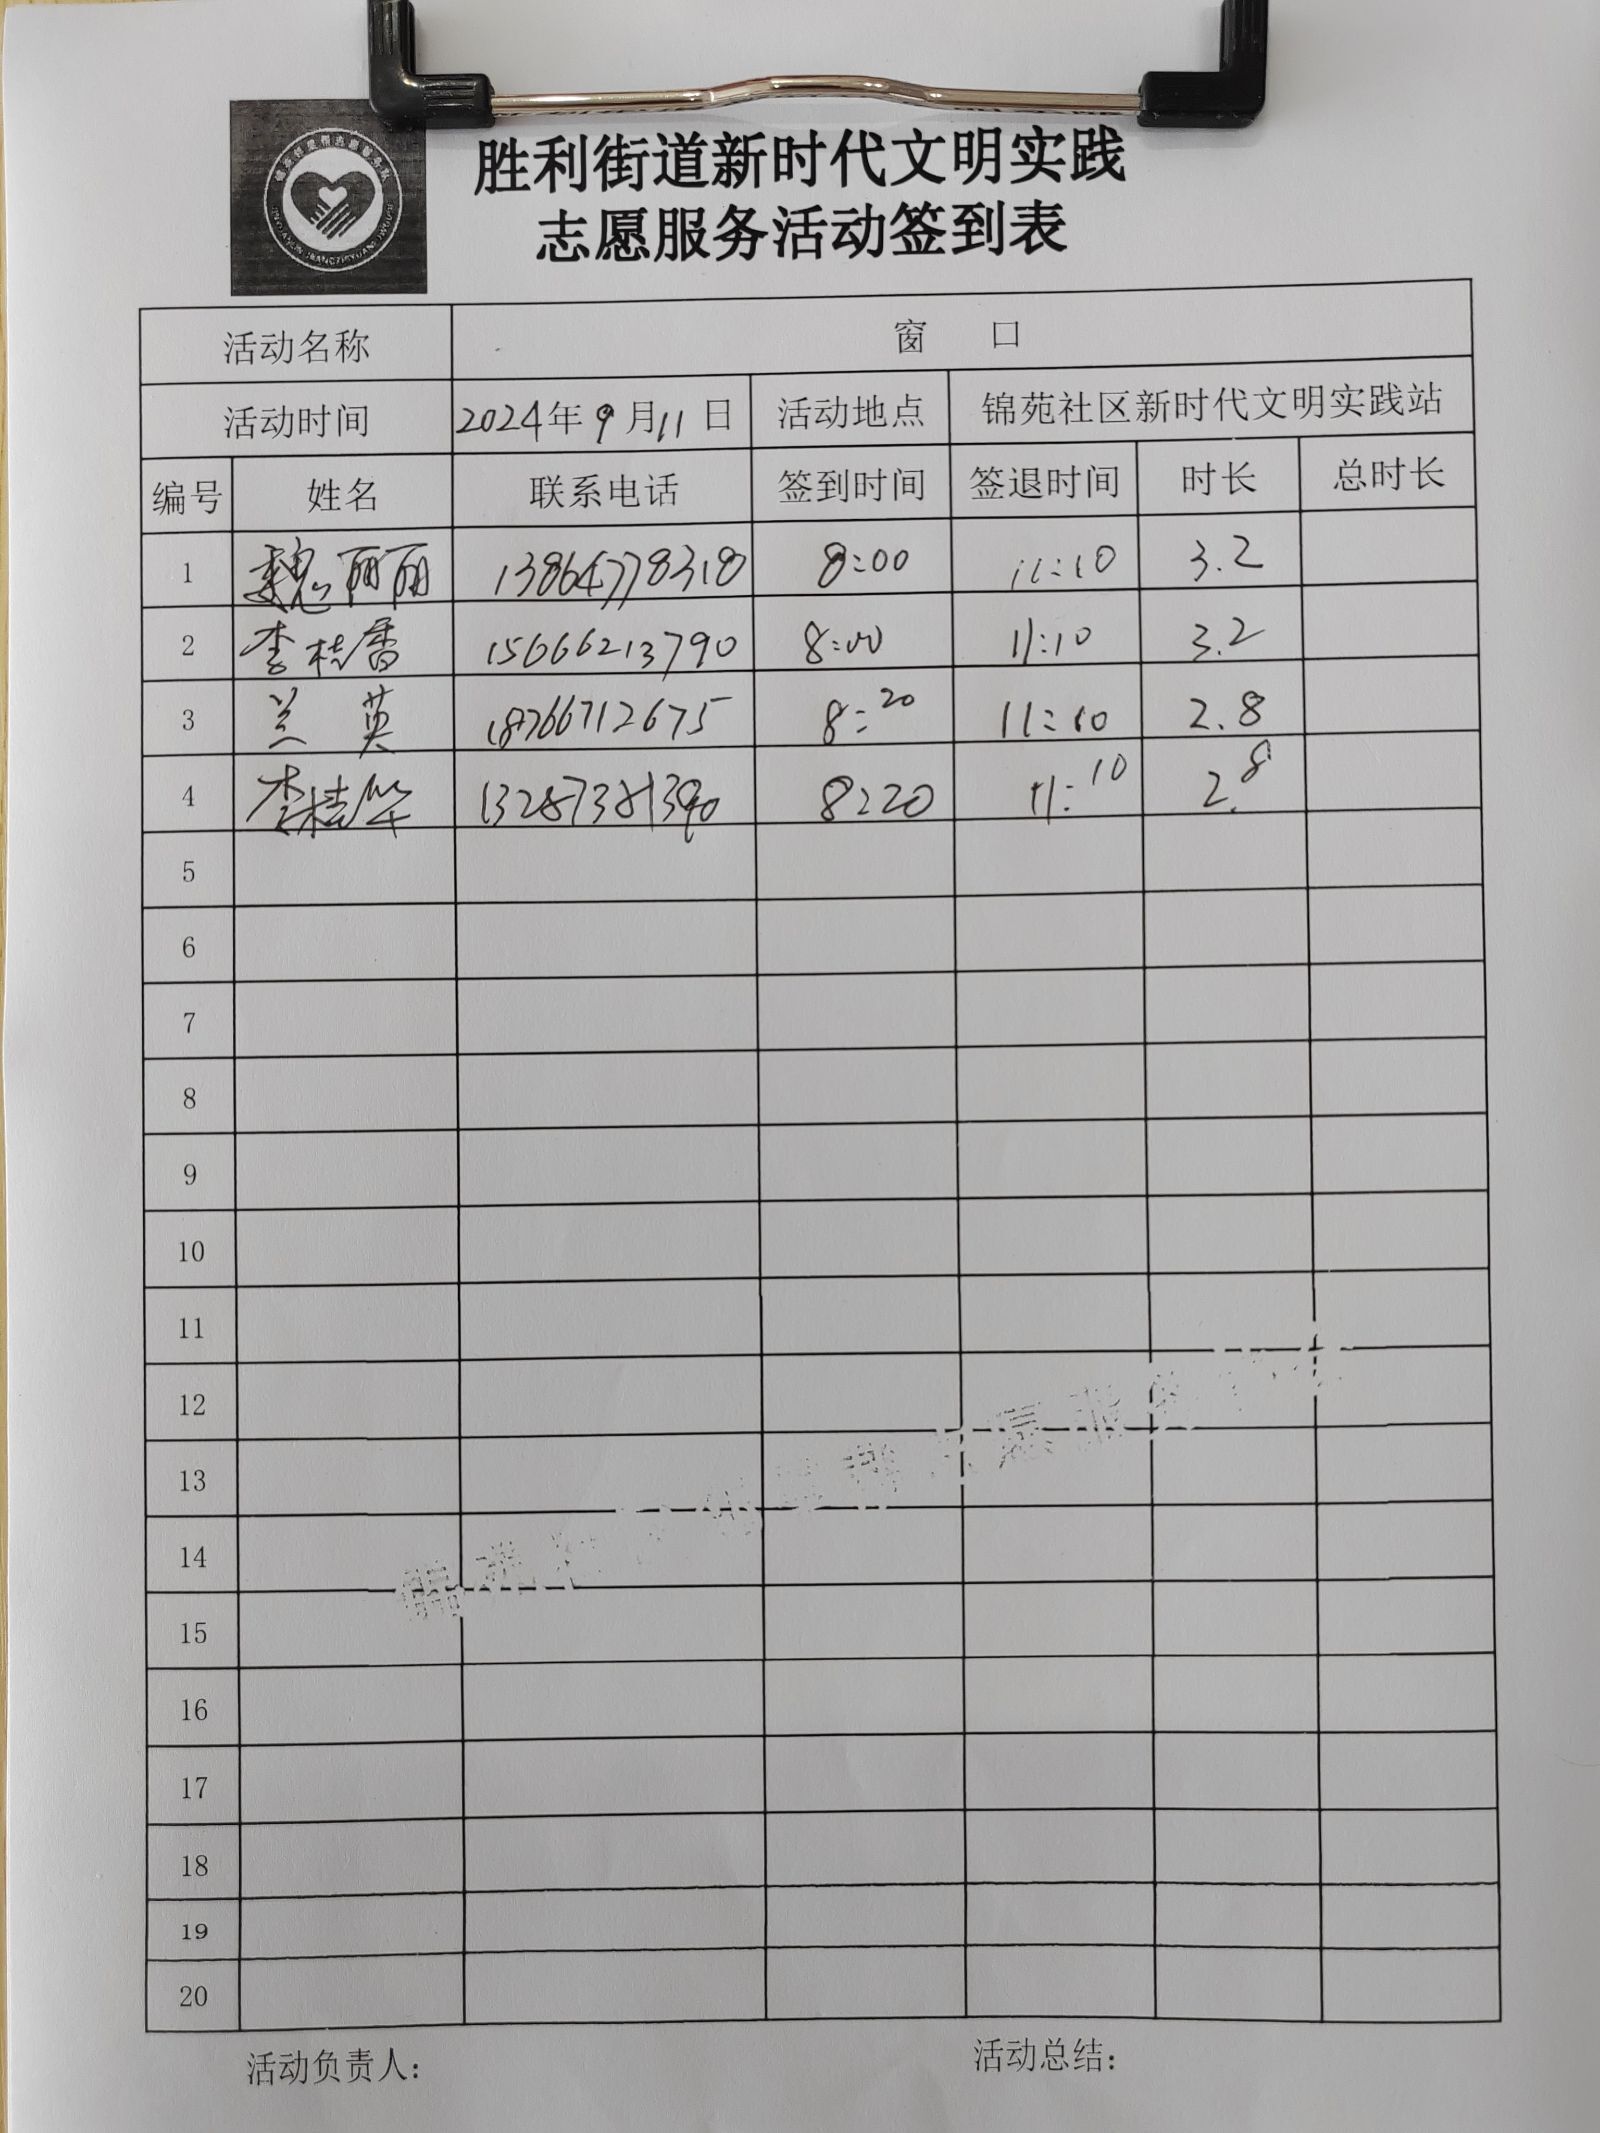 胜利街道新时代文明实践
志愿服务活动签到表
活动名称 窗 口
活动时间 2024年9月11日 活动地点 锦苑社区新时代文明实践站
编号 姓名 联系电话 签到时间 签退时间 时长 总时长
1 魏丽丽 13864778318 8:00 11:10 3.2
2 李桂香 15666213790 8:00 11:10 3.2
3 兰英 18766712675 8:20 11:10 2.8
4 李桂华 13287381390 8:20 11:10 2.8
5
6
7
8
9
10
11
12
13
14
15
16
17
18
19
20
活动负责人: 活动总结: